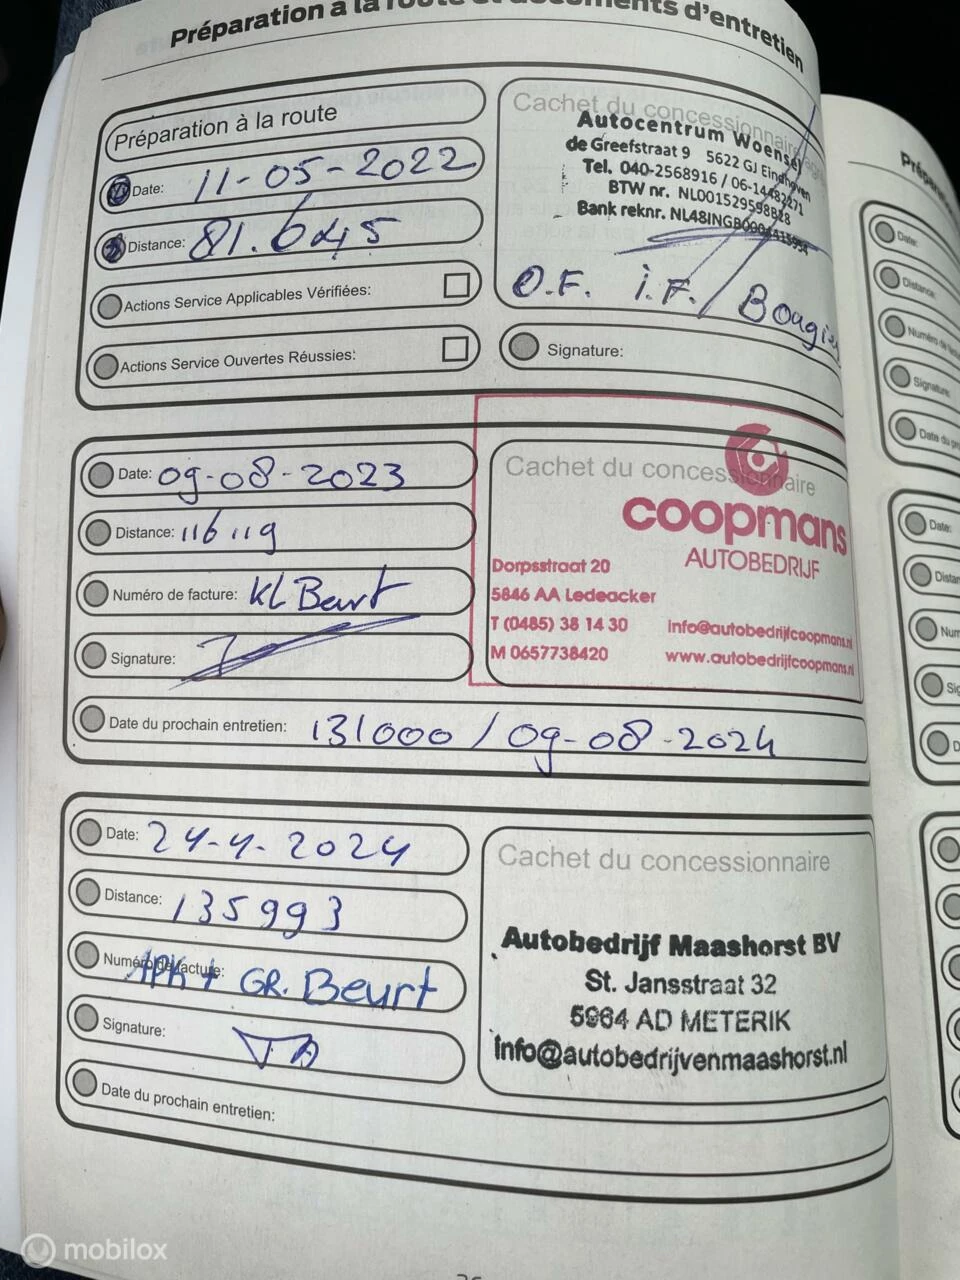 Préparation à la route et documents d'entretien
Préparation à la route
Date: 11-05-2022
Distance: 81.645
Actions Service Applicables Vérifiées:
Actions Service Ouvertes Réussies:
Cachet du concessionnaire
Autocentrum Woensel
de Greefstraat 9 5622 GJ Eindhoven
Tel. 040-2568916 / 06-14482271
BTW nr. NL001529598B28
Bank reknr. NL48INGB0004415954
O.F. i.F. / Bougies
Signature:
Date: 09-08-2023
Distance: 116119
Numéro de facture: KL Beurt
Signature:
Date du prochain entretien: 131000 / 09-08-2024
Cachet du concessionnaire
coopmans
AUTOBEDRIJF
Dorpsstraat 20
5846 AA Ledeacker
T (0485) 38 14 30 info@autobedrijfcoopmans.nl
M 0657738420 www.autobedrijfcoopmans.nl
Date: 24-4-2024
Distance: 135993
Numéro de facture: APK + GR. Beurt
Signature:
Date du prochain entretien:
Cachet du concessionnaire
Autobedrijf Maashorst BV
St. Jansstraat 32
5964 AD METERIK
info@autobedrijvenmaashorst.nl
Date:
Distance:
Signature:
Date:
mobilox